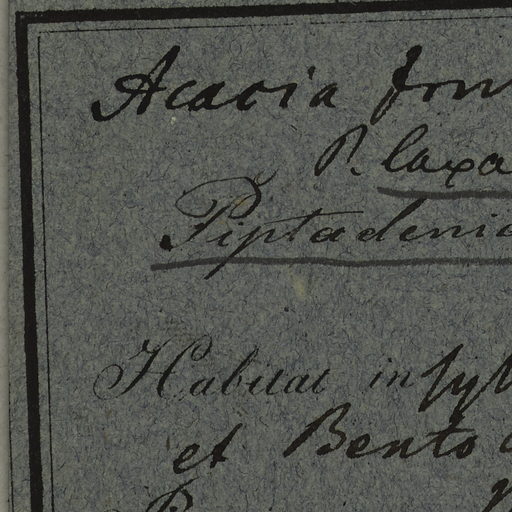 Acacia
P. laxa
Piptadenia
Habitat in syl
et Bento